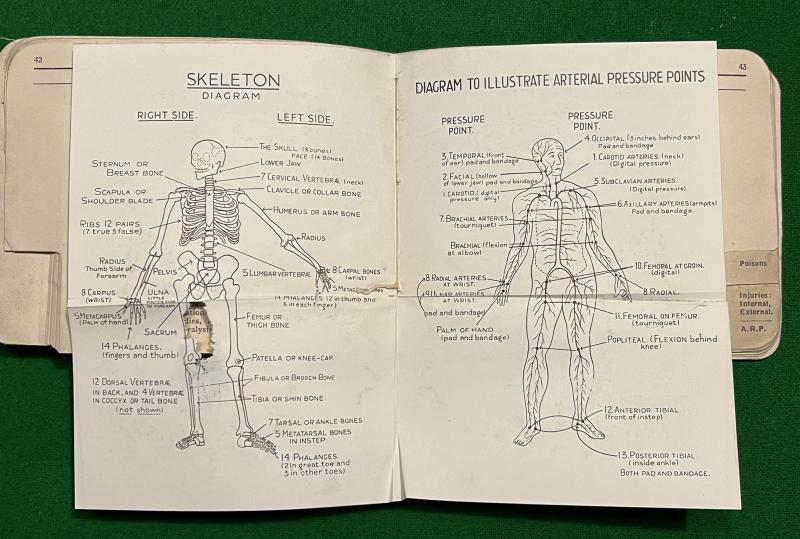 42
SKELETON
DIAGRAM
RIGHT SIDE.
LEFT SIDE.
THE SKULL (8 bones)
FACE (14 BONES)
LOWER JAW
STERNUM OR
BREAST BONE
7 CERVICAL VERTEBRÆ (neck)
CLAVICLE OR COLLAR BONE
SCAPULA OR
SHOULDER BLADE
HUMERUS OR ARM BONE
RIBS 12 PAIRS
(7 true 5 false)
RADIUS
RADIUS
Thumb Side of
Forearm
PELVIS
5 LUMBAR VERTEBRÆ
8 CARPAL BONES
(wrist)
8 CARPUS
(WRIST)
ULNA
LITTLE
OF FOREARM
14 PHALANGES (2 in thumb and
3 in each finger)
5 METACARPUS
(Palm of hand)
SACRUM
FEMUR OR
THIGH BONE
14 PHALANGES,
(fingers and thumb)
PATELLA OR KNEE-CAP.
12 DORSAL VERTEBRÆ
IN BACK, AND 4 VERTEBRÆ
IN COCCYX OR TAIL BONE
(not shown)
FIBULA OR BROOCH BONE
TIBIA OR SHIN BONE.
7 TARSAL OR ANKLE BONES
5 METATARSAL BONES
IN INSTEP
14 PHALANGES
(2 in great toe and
3 in other toes)
43
DIAGRAM TO ILLUSTRATE ARTERIAL PRESSURE POINTS
PRESSURE
POINT.
PRESSURE
POINT.
4. OCCIPITAL (3 inches behind ears)
Pad and bandage
3. TEMPORAL (front
of ear) pad and bandage
1. CAROTID ARTERIES. (neck)
(Digital pressure)
2. FACIAL (hollow
of lower jaw) pad and bandage
1. CAROTID (digital
pressure only)
5. SUBCLAVIAN ARTERIES.
(Digital pressure)
6. AXILLARY ARTERIES (armpits)
Pad and bandage.
7. BRACHIAL ARTERIES
(tourniquet)
BRACHIAL (flexion
at elbow)
10. FEMORAL AT GROIN.
(digital)
8. RADIAL ARTERIES
AT WRIST.
8 RADIAL.
AT WRIST.
pad and bandage)
11. FEMORAL ON FEMUR.
(tourniquet)
PALM OF HAND.
(pad and bandage)
POPLITEAL (FLEXION behind
knee)
12. ANTERIOR TIBIAL
(front of instep)
13. POSTERIOR TIBIAL
(inside ankle)
BOTH PAD AND BANDAGE.
Poisons
Injuries:
Internal,
External.
A.R.P.